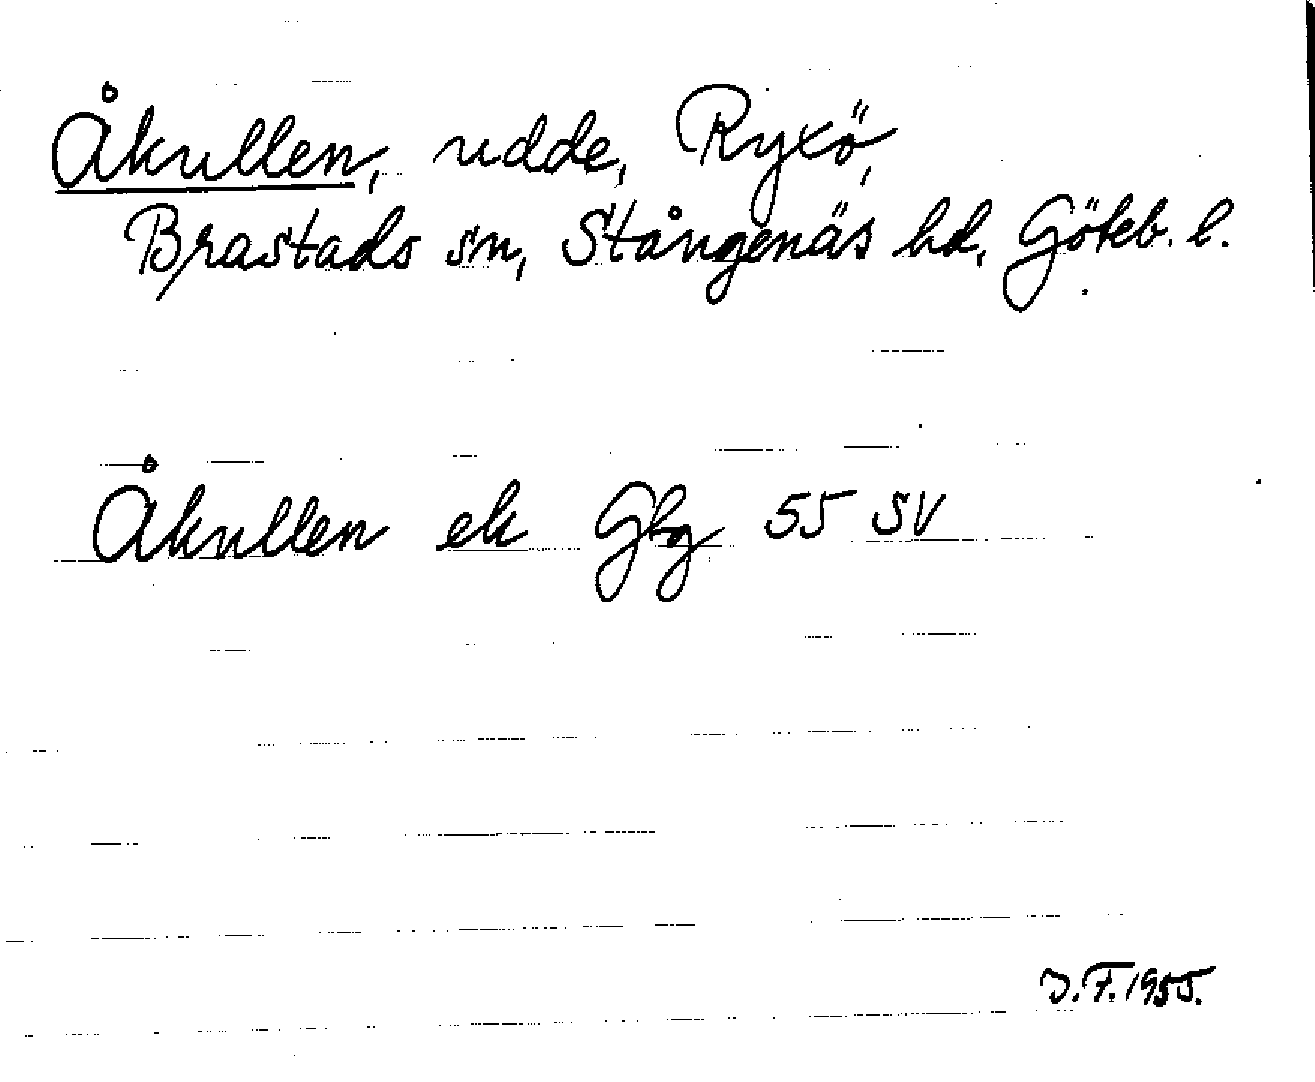 Åkullen, udde, Ryxö,
Brastads sn, Stångenäs hd, Göteb. l.
Åkullen ek Gbg 55 SV
J.F. 1955.